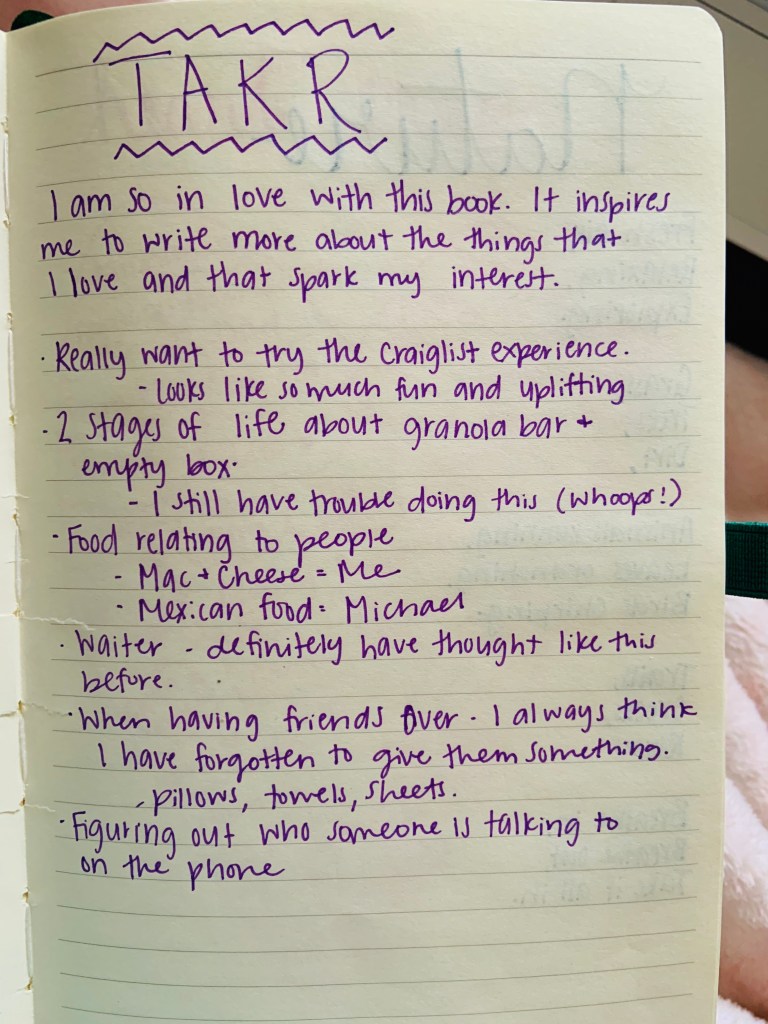 TAKR
I am so in love with this book. It inspires
me to write more about the things that
I love and that spark my interest.
· Really want to try the Craiglist experience.
- Looks like so much fun and uplifting
· 2 stages of life about granola bar +
empty box.
- I still have trouble doing this (whoops!)
· Food relating to people
- Mac + Cheese = Me
- Mexican food = Michael
· Waiter - definitely have thought like this
before.
· When having friends over - I always think
I have forgotten to give them something.
- pillows, towels, sheets.
· Figuring out who someone is talking to
on the phone